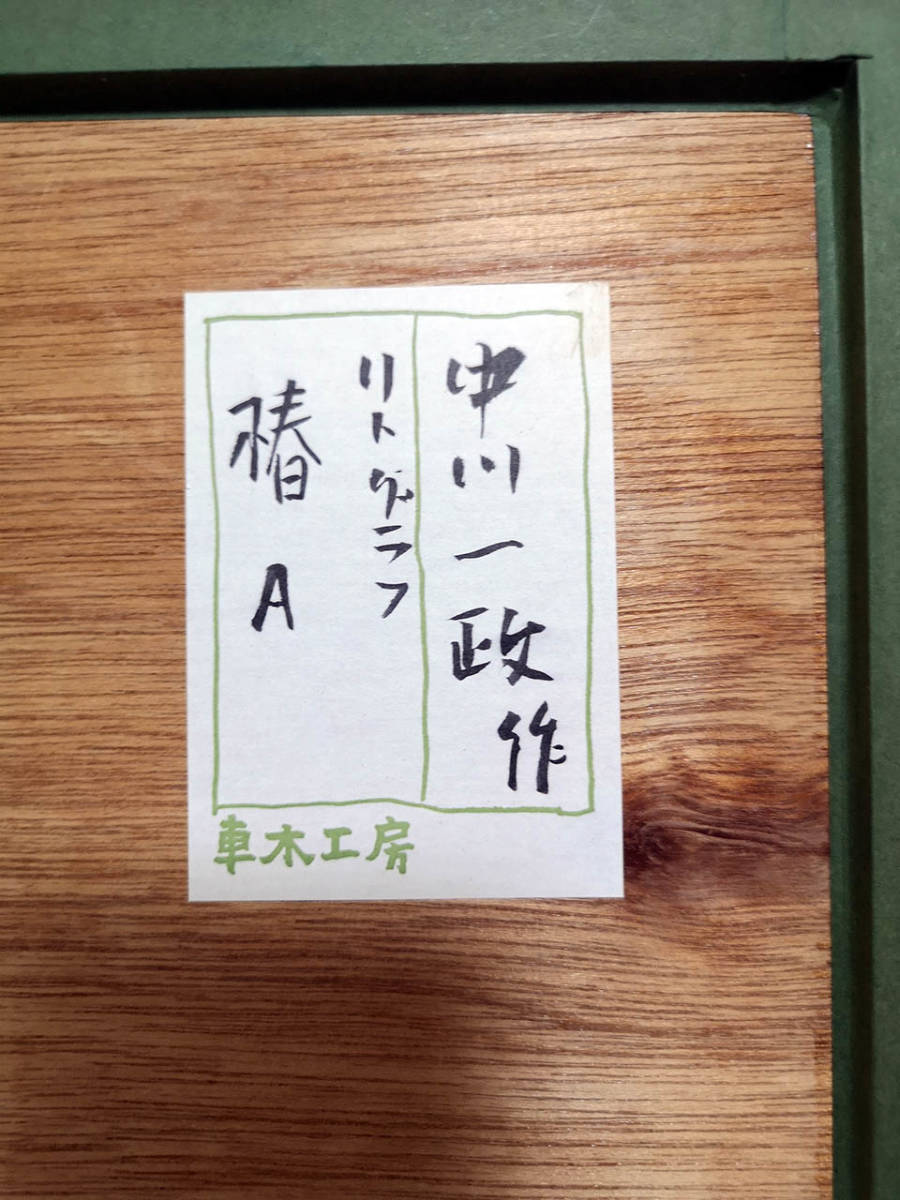 中川一政作
リトグラフ
椿 A
車木工房